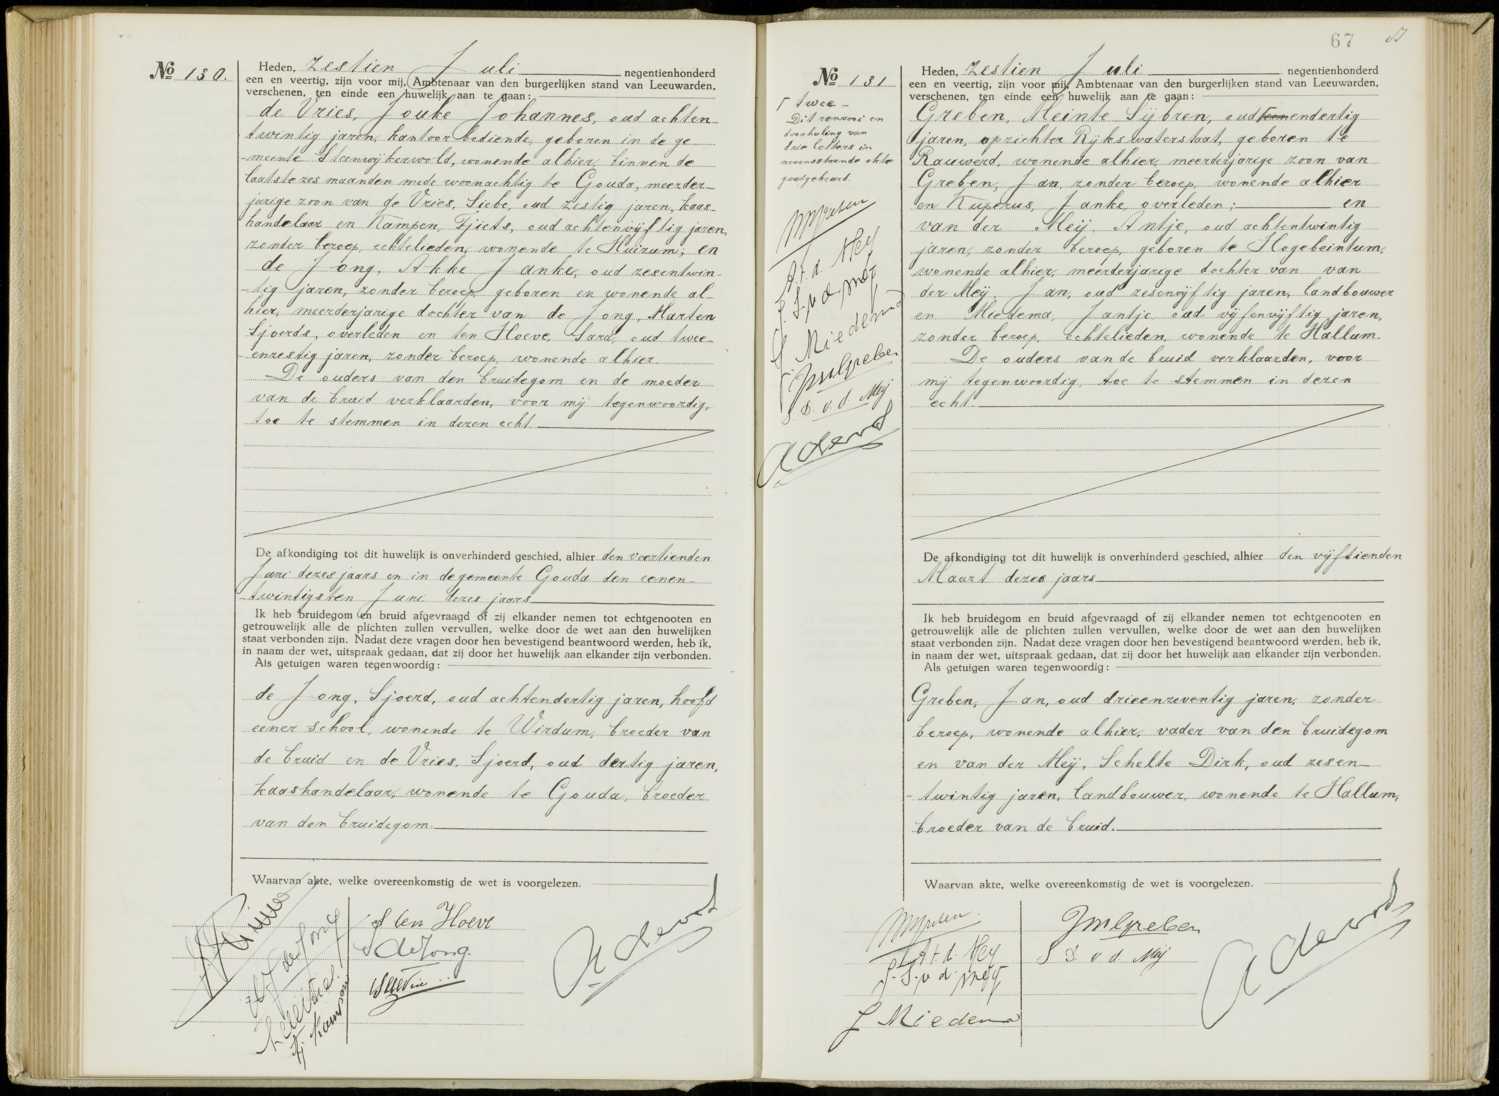 No 130.
Heden, zestien Juli negentienhonderd
een en veertig, zijn voor mij, Ambtenaar van den burgerlijken stand van Leeuwarden,
verschenen, ten einde een huwelijk aan te gaan:
de Vries, Jouke Johannes, oud achten-
twintig jaren, kantoorbediende, geboren in de ge-
meente Steenwijkerwold, wonende alhier, binnen de
laatste zes maanden mede woonachtig te Gouda, meerder-
jarige zoon van de Vries, Siebe, oud zestig jaren, kaas-
handelaar en Kampen, Tjiets, oud achtenvijftig jaren,
zonder beroep, echtelieden, wonende te Huizum; en
de Jong, Akke Janke, oud zesentwin-
tig jaren, zonder beroep, geboren en wonende al-
hier, meerderjarige dochter van de Jong, Marten
Sjoerds, overleden en ten Hoeve, Sara, oud twee-
enzestig jaren, zonder beroep, wonende alhier.
De ouders van den bruidegom en de moeder
van de bruid verklaarden, voor mij tegenwoordig,
toe te stemmen in dezen echt.
De afkondiging tot dit huwelijk is onverhinderd geschied, alhier den veertienden
Juni dezes jaars en in de gemeente Gouda den eenen-
twintigsten Juni dezes jaars
Ik heb bruidegom en bruid afgevraagd of zij elkander nemen tot echtgenooten en
getrouwelijk alle de plichten zullen vervullen, welke door de wet aan den huwelijken
staat verbonden zijn. Nadat deze vragen door hen bevestigend beantwoord werden, heb ik,
in naam der wet, uitspraak gedaan, dat zij door het huwelijk aan elkander zijn verbonden.
Als getuigen waren tegenwoordig:
de Jong, Sjoerd, oud achtendertig jaren, hoofd
eener school, wonende te Wirdum, broeder van
de bruid en de Vries, Sjoerd, oud dertig jaren,
kaashandelaar, wonende te Gouda, broeder
van den bruidegom.
Waarvan akte, welke overeenkomstig de wet is voorgelezen.
S ten Hoeve
S de Jong.
de Jong
Tj. Kampen
67
No 131
twee-
Dit renvooi en
doorhaling van
drie letters in
nevenstaande akte
goedgekeurd.
A v d Mey
J. S. v d Meij
J. Miedema
JM Greben
S D v d Meij
Heden, zestien Juli negentienhonderd
een en veertig, zijn voor mij, Ambtenaar van den burgerlijken stand van Leeuwarden,
verschenen, ten einde een huwelijk aan te gaan:
Greben, Meinte Sijbren, oud endertig
jaren, opzichter Rijkswaterstaat, geboren te
Rauwerd, wonende alhier, meerderjarige zoon van
Greben, Jan, zonder beroep, wonende alhier
en Kuperus, Janke, overleden; en
van der Meij, Antje, oud achtentwintig
jaren, zonder beroep, geboren te Hogebeintum,
wonende alhier, meerderjarige dochter van van
der Meij, Jan, oud zesenvijftig jaren, landbouwer
en Miedema, Jantje, oud vijfenvijftig jaren,
zonder beroep, echtelieden, wonende te Hallum.
De ouders van de bruid verklaarden, voor
mij tegenwoordig, toe te stemmen in dezen
echt.
De afkondiging tot dit huwelijk is onverhinderd geschied, alhier den vijftienden
Maart dezes jaars
Ik heb bruidegom en bruid afgevraagd of zij elkander nemen tot echtgenooten en
getrouwelijk alle de plichten zullen vervullen, welke door de wet aan den huwelijken
staat verbonden zijn. Nadat deze vragen door hen bevestigend beantwoord werden, heb ik,
in naam der wet, uitspraak gedaan, dat zij door het huwelijk aan elkander zijn verbonden.
Als getuigen waren tegenwoordig:
Greben, Jan, oud drieenzeventig jaren, zonder
beroep, wonende alhier, vader van den bruidegom
en van der Meij, Schelte Dirk, oud zesen-
twintig jaren, landbouwer, wonende te Hallum,
broeder van de bruid.
Waarvan akte, welke overeenkomstig de wet is voorgelezen.
A v d Mey
J. S. v d Meij
J Miedema
JM Greben
S D v d Meij